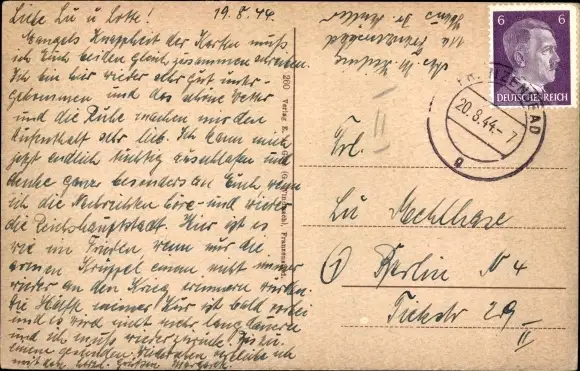 Liebe Lu u Lotte! 19.8.44
Mangels Knappheit der Karten muß
ich Euch beiden gleich zusammen schreiben.
Ich bin hier wieder sehr gut unter-
gekommen und das schöne Wetter
und die Ruhe machen mir den
Aufenthalt sehr lieb. Ich kann mich
jetzt endlich richtig ausschlafen und
denke ganz besonders an Euch wenn
ich die Nachrichten höre und wieder
die Reichshauptstadt. Hier ist es
wie im Frieden wenn nur die
armen Krüppel einem nicht immer
wieder an den Krieg erinnern würden
die Hälfte meiner Kur ist bald vorbei
und es wird nicht mehr lang dauern
und ich muß wieder zurück. Bis zu
einem gesunden Wiedersehen
mit Grüßen
260 Verlag E. Franzensbad.
6 6
DEUTSCHES REICH
20.8.44.-7
a
Frl.
Lu Mechthase
Berlin N 4
Tieckstr 29
II